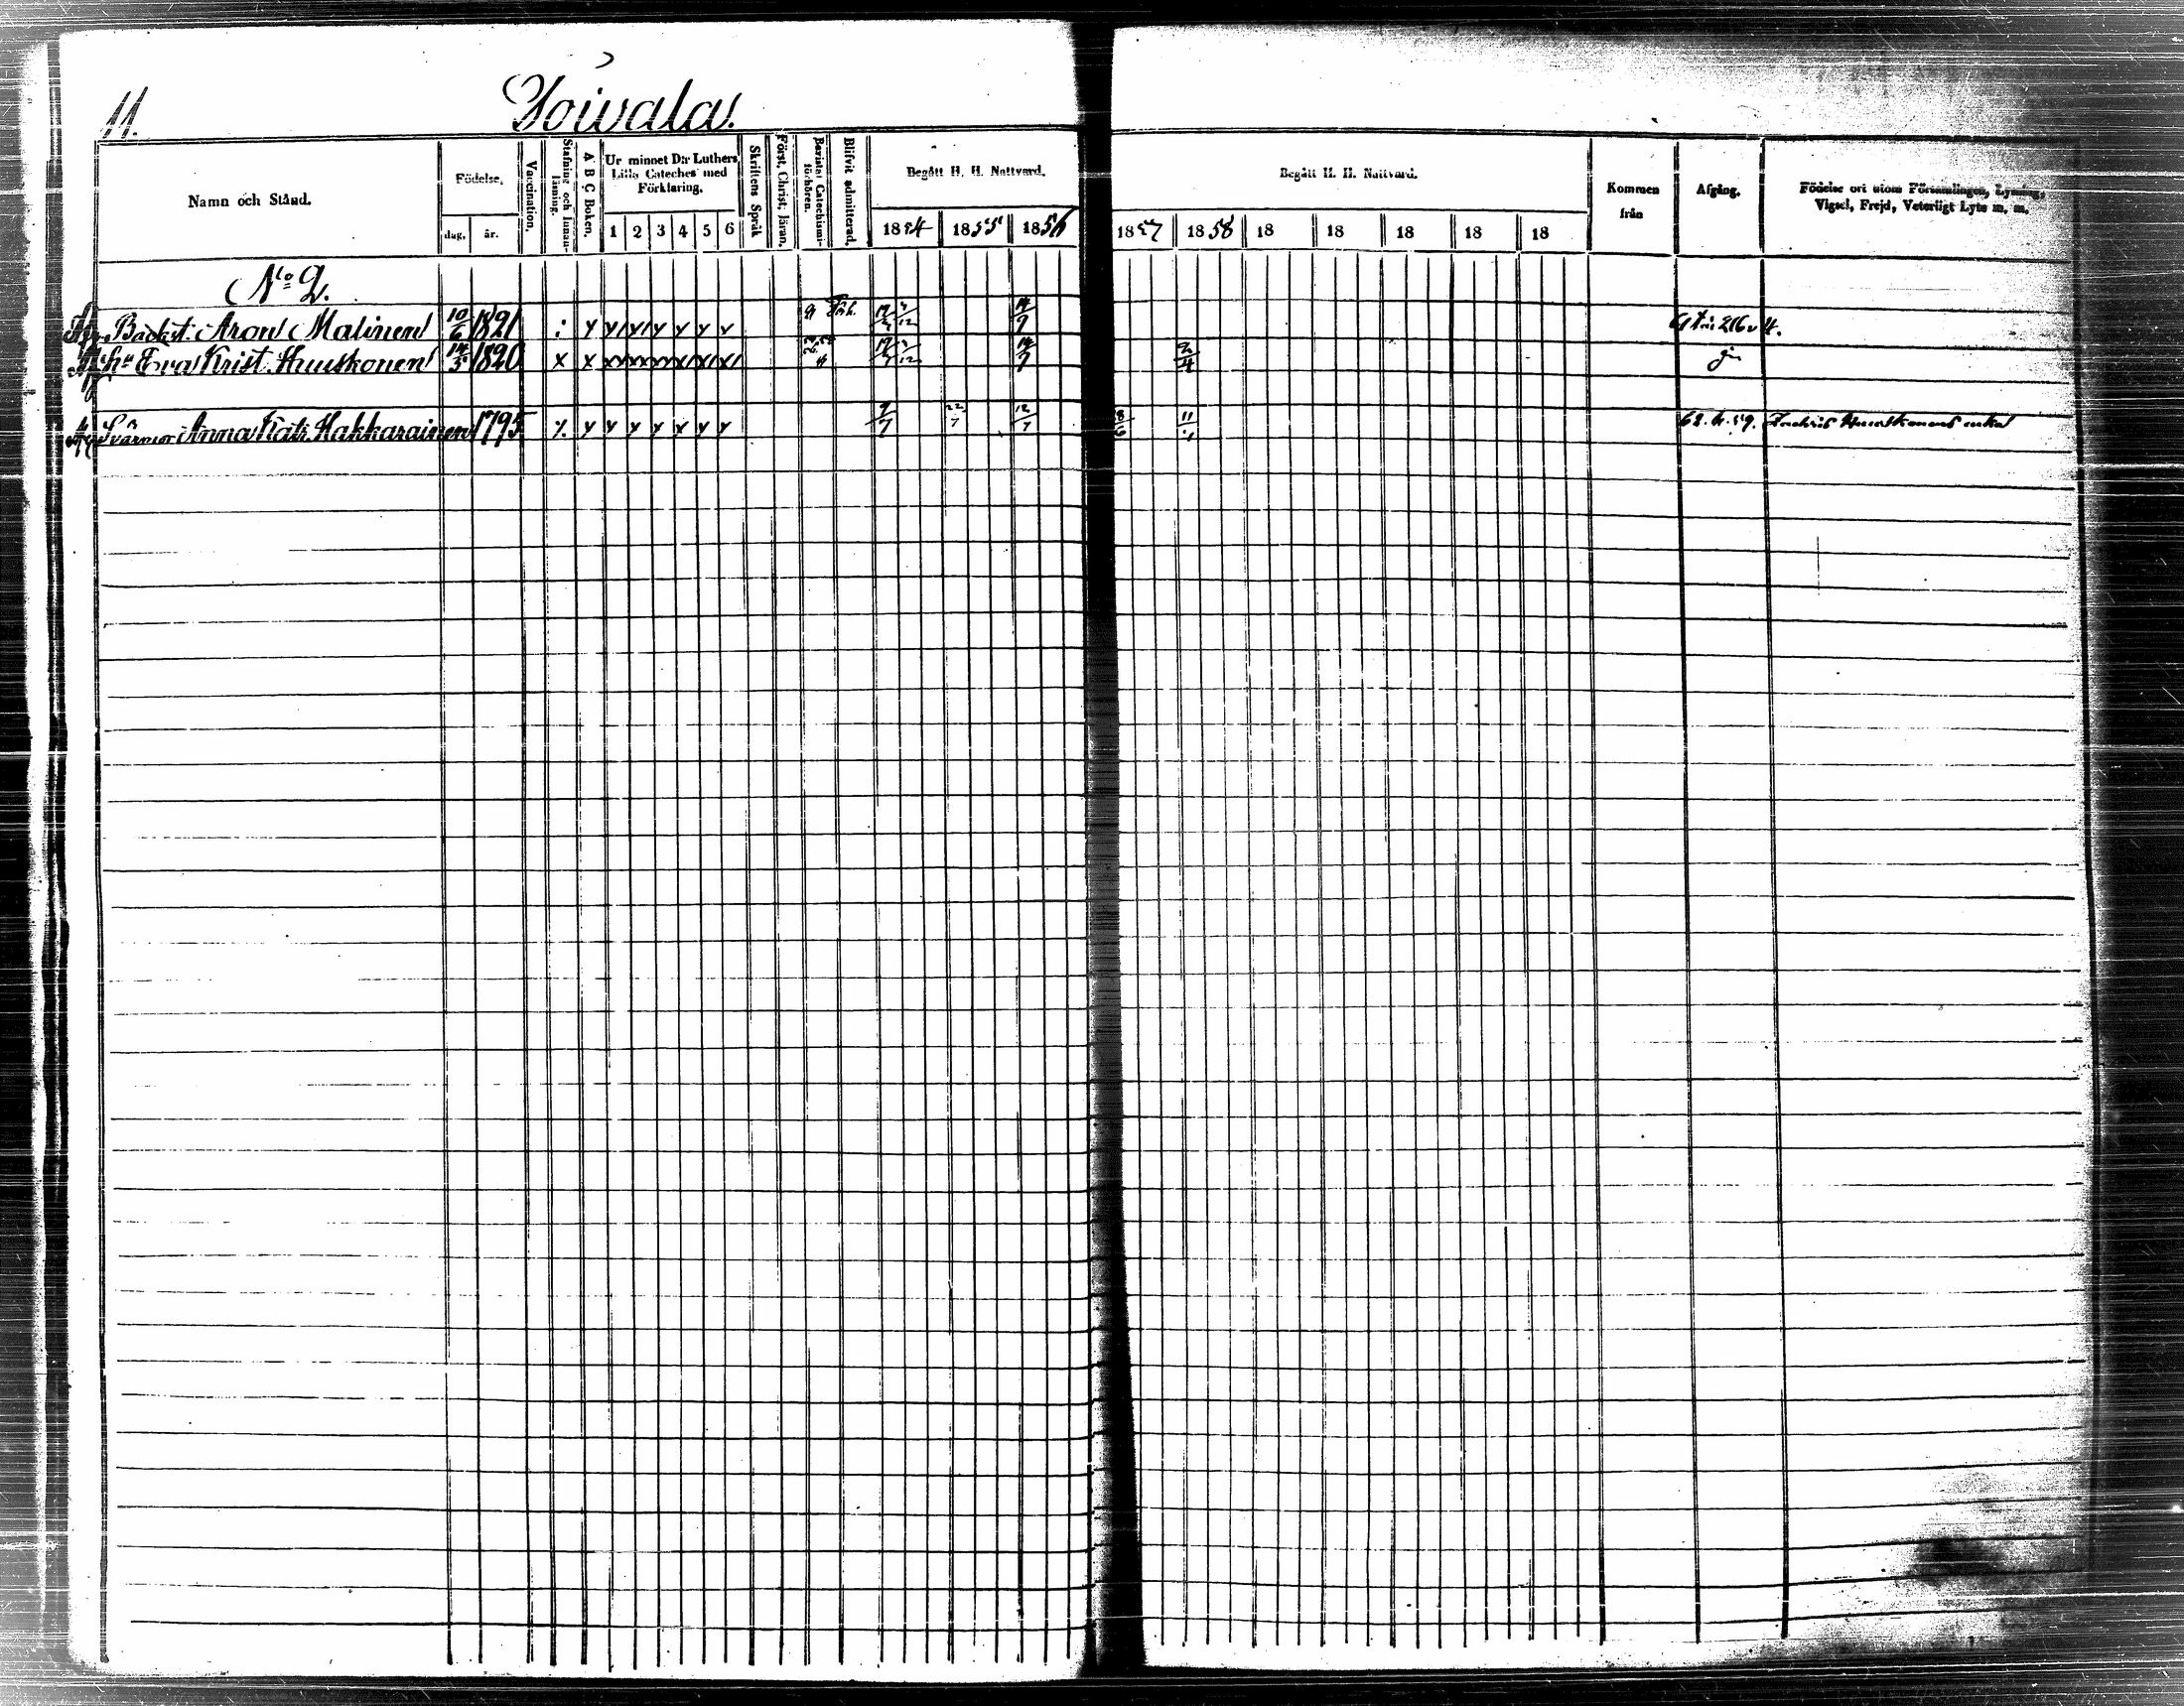 11.
Toivala.
Namn och Stånd.
Födelse,
dag, år.
Vaccination.
Stafning och Innanläsning.
A B C Boken.
Ur minnet D:r Luthers Lilla Cateches med Förklaring.
1 2 3 4 5 6
Skriftens Språk
Först. Christ. läran.
Bevistat Catechismiförhören.
Blifvit admitterad.
Begått H. H. Nattvard.
1854 1855 1856
Begått H. H. Nattvard.
1857 1858 18 18 18 18 18
Kommen från
Afgång.
Födelse ort utom Församlingen, Lysning, Vigsel, Frejd, Veterligt Lyte m. m.
No 2.
Aron Malinen 10/6 1821 14/9
Eva Krist. Huuskonen 14/5 1820 x x 14/9 2/4
Svärmor Anna Kat. Hakkarainen 1795 9/7 22/7 12/7 8/6 Huuskonens enka